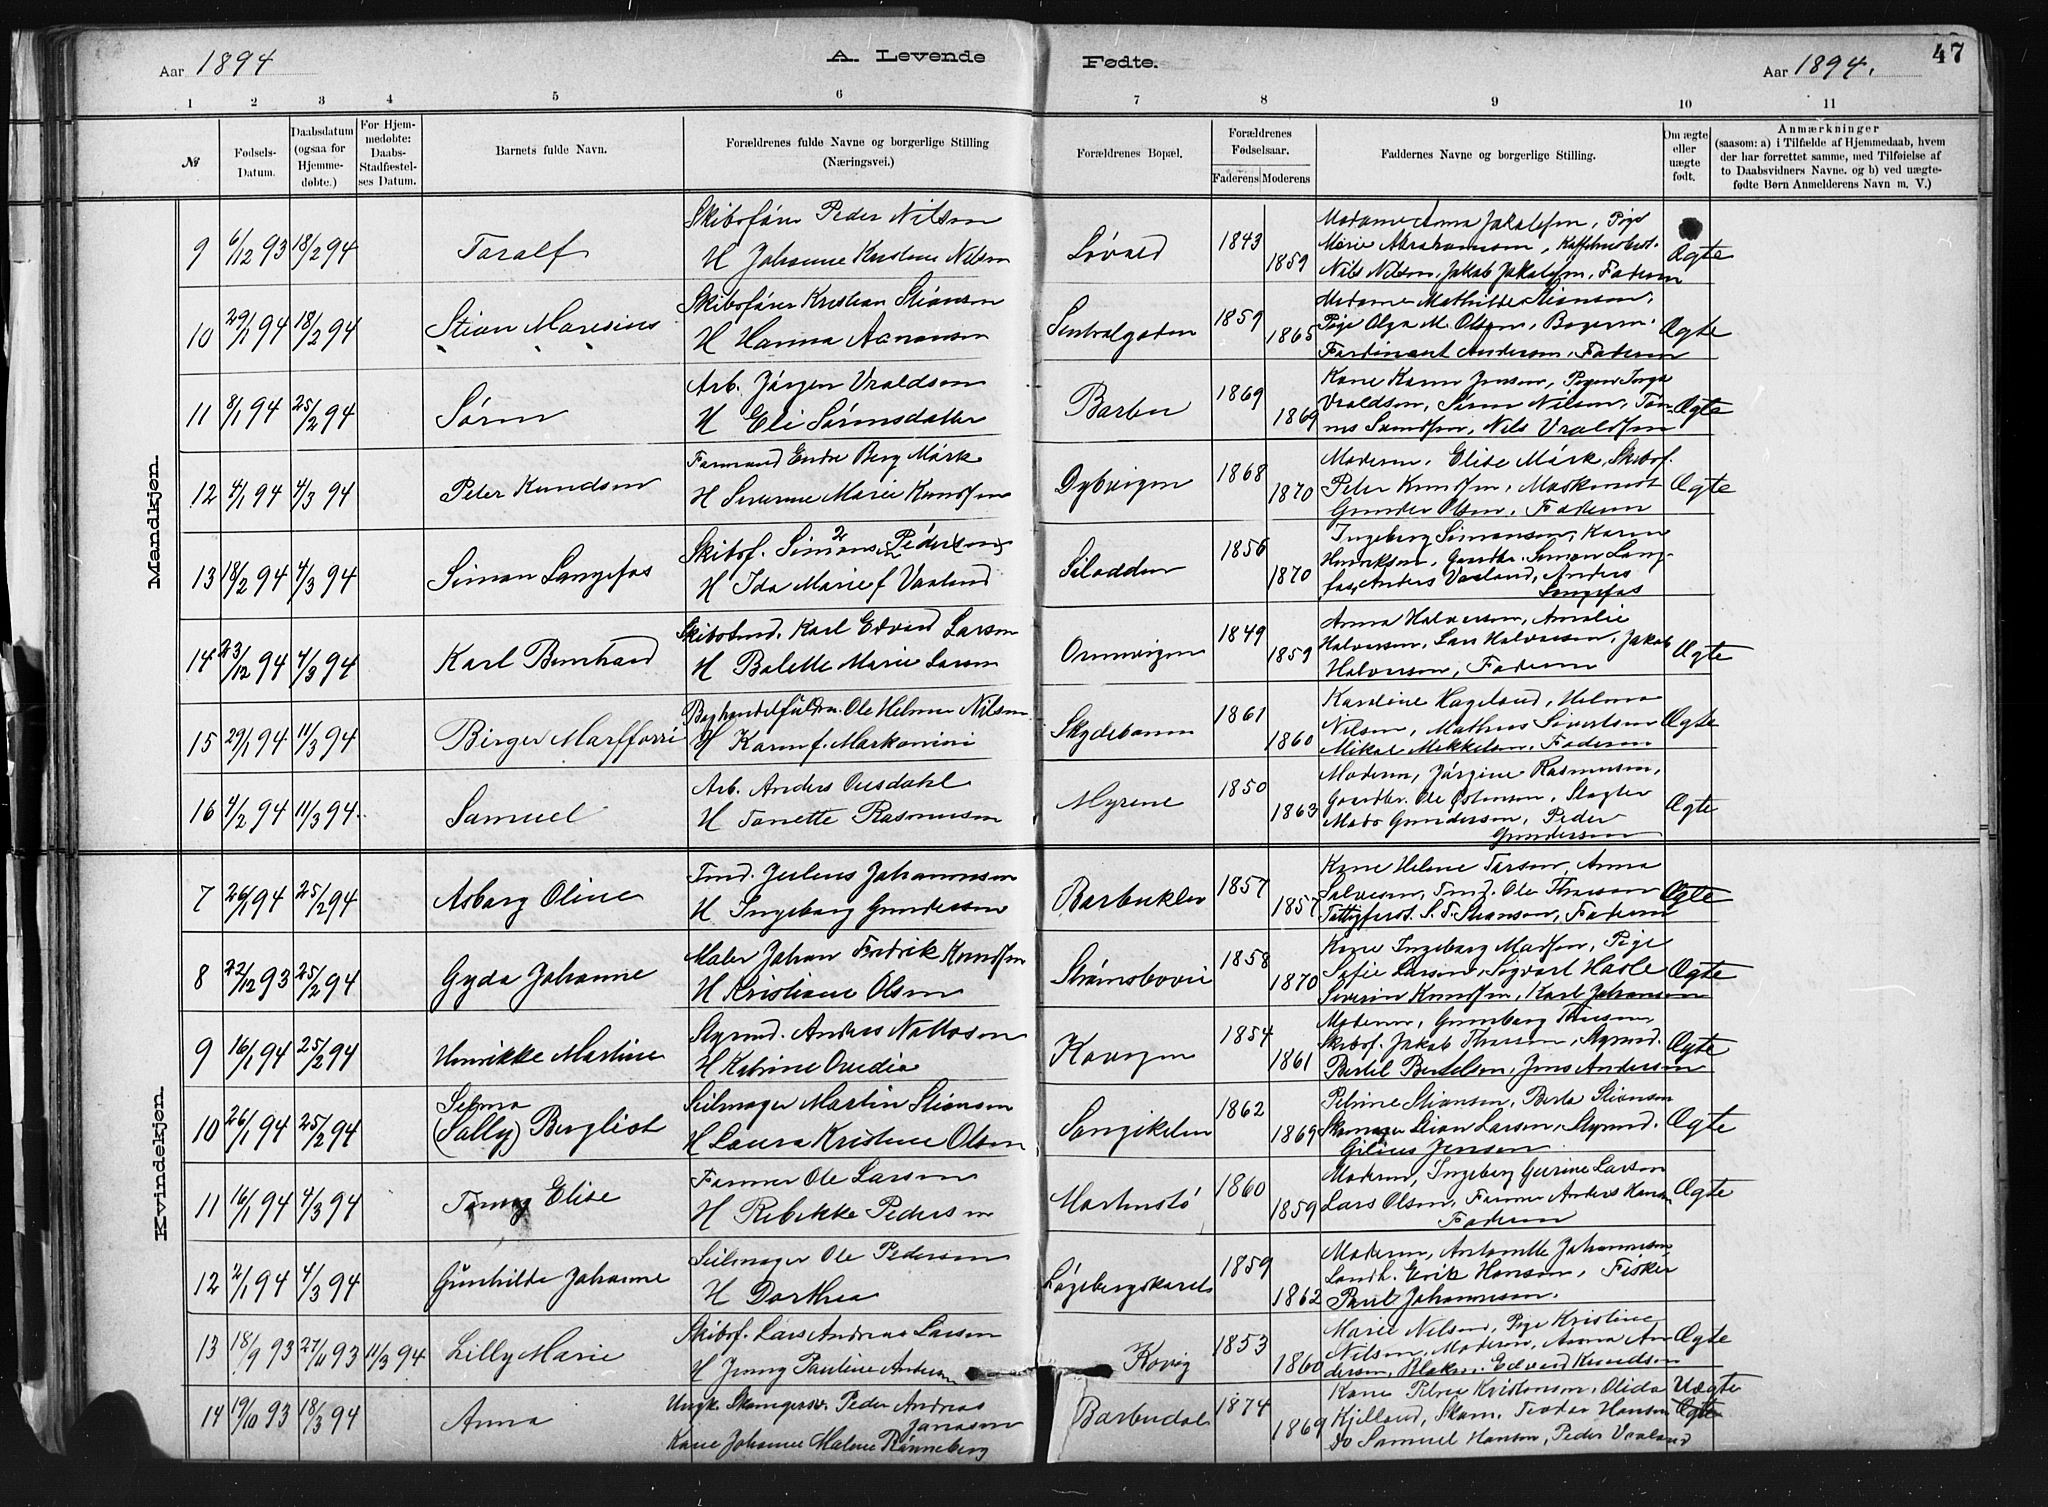 Aar 1894
A. Levende
Fødte.
Aar 1894.
47
1 2 3 4 5 6 7 8 9 10 11
№
Fødsels-
Datum.
Daabsdatum
(ogsaa for
Hjemme-
døbte.)
For Hjem-
medøbte:
Daabs-
Stadfæstel-
ses Datum.
Barnets fulde Navn.
Forældrenes fulde Navne og borgerlige Stilling
(Næringsvei.)
Forældrenes Bopæl.
Forældrenes
Fødselsaar.
Faderens Moderens
Faddernes Navne og borgerlige Stilling.
Om ægte
eller
uægte
født.
Anmærkninger
(saasom: a) i Tilfælde af Hjemmedaab, hvem
der har forrettet samme, med Tilføielse af
to Daabsvidners Navne. og b) ved uægte-
fødte Børn Anmelderens Navn m. V.)
Mandkjøn.
9 6/12 93 18/2 94 Taralf
Skibsfører Peder Nilsen
H Johanne Kristine Nilsen
Løvold 1843 1859
Madame Anna Jakobsen, Pige
Marie Abrahamsen,
Nils Nilsen, Jakob Jakobsen, Faderen
Ægte
10 29/1 94 18/2 94 Stian Maresius
Skibsfører Kristian Stiansen
H Hanna Aanonsen
Sentralgaden 1859 1865
Madame Mathilde Stiansen,
Pige Olga M. Olsen, Bagerm.
Ferdinant Andersen, Faderen
Ægte
11 8/1 94 25/2 94 Søren
Arb. Jørgen Vraldsen
H Eli Sørensdatter
Barbu 1869 1869
Kone Karen Jensen, Pigen Inga
Vraldsen, Søren Nilsen, Tøn-
nes Svendsen, Nils Vraldsen
Ægte
12 4/1 94 4/3 94 Peter Knudsen
Formand Endre Berg Mørk
H Severine Marie Knudsen
Dybvigen 1868 1870
Moderen, Elise Mørk, Skibsf.
Peter Knudsen, Maskinist
Gunder Olsen, Faderen
Ægte
13 18/2 94 4/3 94 Simon Langefos
Skibsf. Simonsen Pedersen
H Ida Marie f Vaaland
Silodden 1856 1870
Ingeborg Simonsen, Karen
Henriksen, Gaardbr. Simon Lang-
fos, Anders Vaaland, Anders
Langefos
14 23/12 94 4/3 94 Karl Bernhard
Skibstmd. Karl Edvard Larsen
H Bolette Marie Larsen
Ormevigen 1849 1859
Anna Halvorsen, Amalie
Halvorsen, Lars Halvorsen, Jakob
Halvorsen, Faderen
Ægte
15 29/1 94 11/3 94 Birger
Ole Helmer Nilsen
H Karen f.
Skydebanen 1861 1860
Karoline Hageland, Helma
Nilsen, Mathias Sivertsen
Mikal Mikkelsen, Faderen
Ægte
16 4/2 94 11/3 94 Samuel
Arb. Anders Ousdahl
H Tonette Rasmussen
Myrene 1850 1863
Moderen, Jørgine Rasmussen,
Gaardbr. Ole Østensen, Slagter
Mads Gundersen, Peder
Gundersen
Ægte
Kvindekjøn.
7 26/1 94 25/2 94 Asborg Oline
Tmd. Julius Johannessen
H Ingeborg Gundersen
Barbuklev 1857 1857
Kone Helene Tarsen, Anna
Salvesen, Tmd. Ole Thorsen
S. T. Stiansen, Faderen
Ægte
8 22/12 93 25/2 94 Gyda Johanne
Maler Johan Fredrik Knudsen
H Kristiane Olsen
Strømsboveie 1858 1870
Kone Ingeborg Madsen, Pige
Sofie Larsen, Sigvart Hasle
Severin Knudsen, Karl Johansen
Ægte
9 16/1 94 25/2 94 Henrikke Martine
Styrmd. Anders Nattosen
H Katrine Ovedia
Kovigen 1854 1861
Moderen, Gunborg Thorsen
Skibsf. Jakob Thorsen, Styrmd.
Bertel Bertelsen, Jens Andersen
Ægte
10 26/1 94 25/2 94 Selma
(Sally) Bergliot
Seilmager Martin Stiansen
H Laura Kristine Olsen
Songekleiv 1862 1869
Petrine Stiansen, Berta Stiansen
Skomager Stian Larsen, Styrmd.
Gilius Jensen
Ægte
11 16/1 94 4/3 94 Tomy Elise
Former Ole Larsen
H Rebekke Pedersen
Martinstø 1860 1859
Moderen, Ingeborg Gurine Larsen
Lars Olsen, Former Anders Hansen
Faderen
Ægte
12 2/1 94 4/3 94 Gunhilde Johanne
Seilmager Ole Pedersen
H Dorthea
Løgebergskaret 1859 1862
Moderen, Antonette Johannesen
Landh. Erik Hansen, Fisker
Paul Johannesen.
13 18/9 93 27/11 93 11/3 94 Lilly Marie
Skibsf. Lars Andreas Larsen
H Jenny Pauline Andersen
Kovig 1853 1860
Marie Nilsen, Pige Kristine
Nilsen, Moderen, Anna An-
dersen, Edvard Knudsen
Ægte
14 19/10 93 18/3 94 Anna
Ungk. Skomagersv. Peder Andreas
Jonassen
Kone Johanne Malene Rønneberg
Barbudal 1874 1869
Kone Petrea Kristensen, Olida
Kjelland, Skom. Teodor Hansen
Do Samuel Hansen, Peder Vaaland
Uægte
Ægte